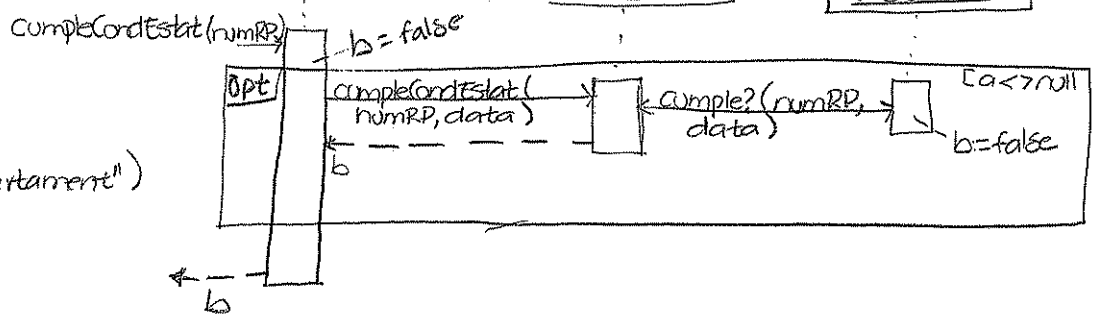 cumpleCondEstat(numRP)
b=false
opt
[a<>null
cumpleCondEstat(
numRP, data)
cumple?(numRP,
data)
b
b=false
rtament")
b